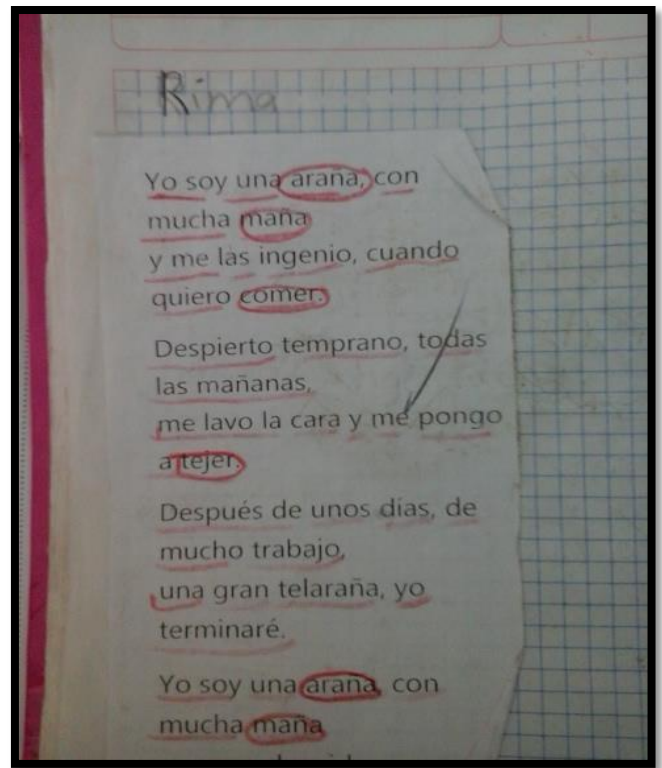 Rima
Yo soy una araña, con
mucha maña
y me las ingenio, cuando
quiero comer.
Despierto temprano, todas
las mañanas,
me lavo la cara y me pongo
a tejer.
Después de unos días, de
mucho trabajo,
una gran telaraña, yo
terminaré.
Yo soy una araña, con
mucha maña